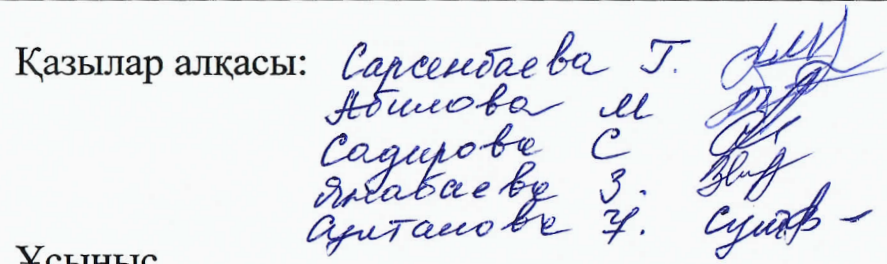 Қазылар алқасы: Сарсенбаева Г.
Абилова М
Садирова С
Янабаева З.
Султанова
Ұсыныс